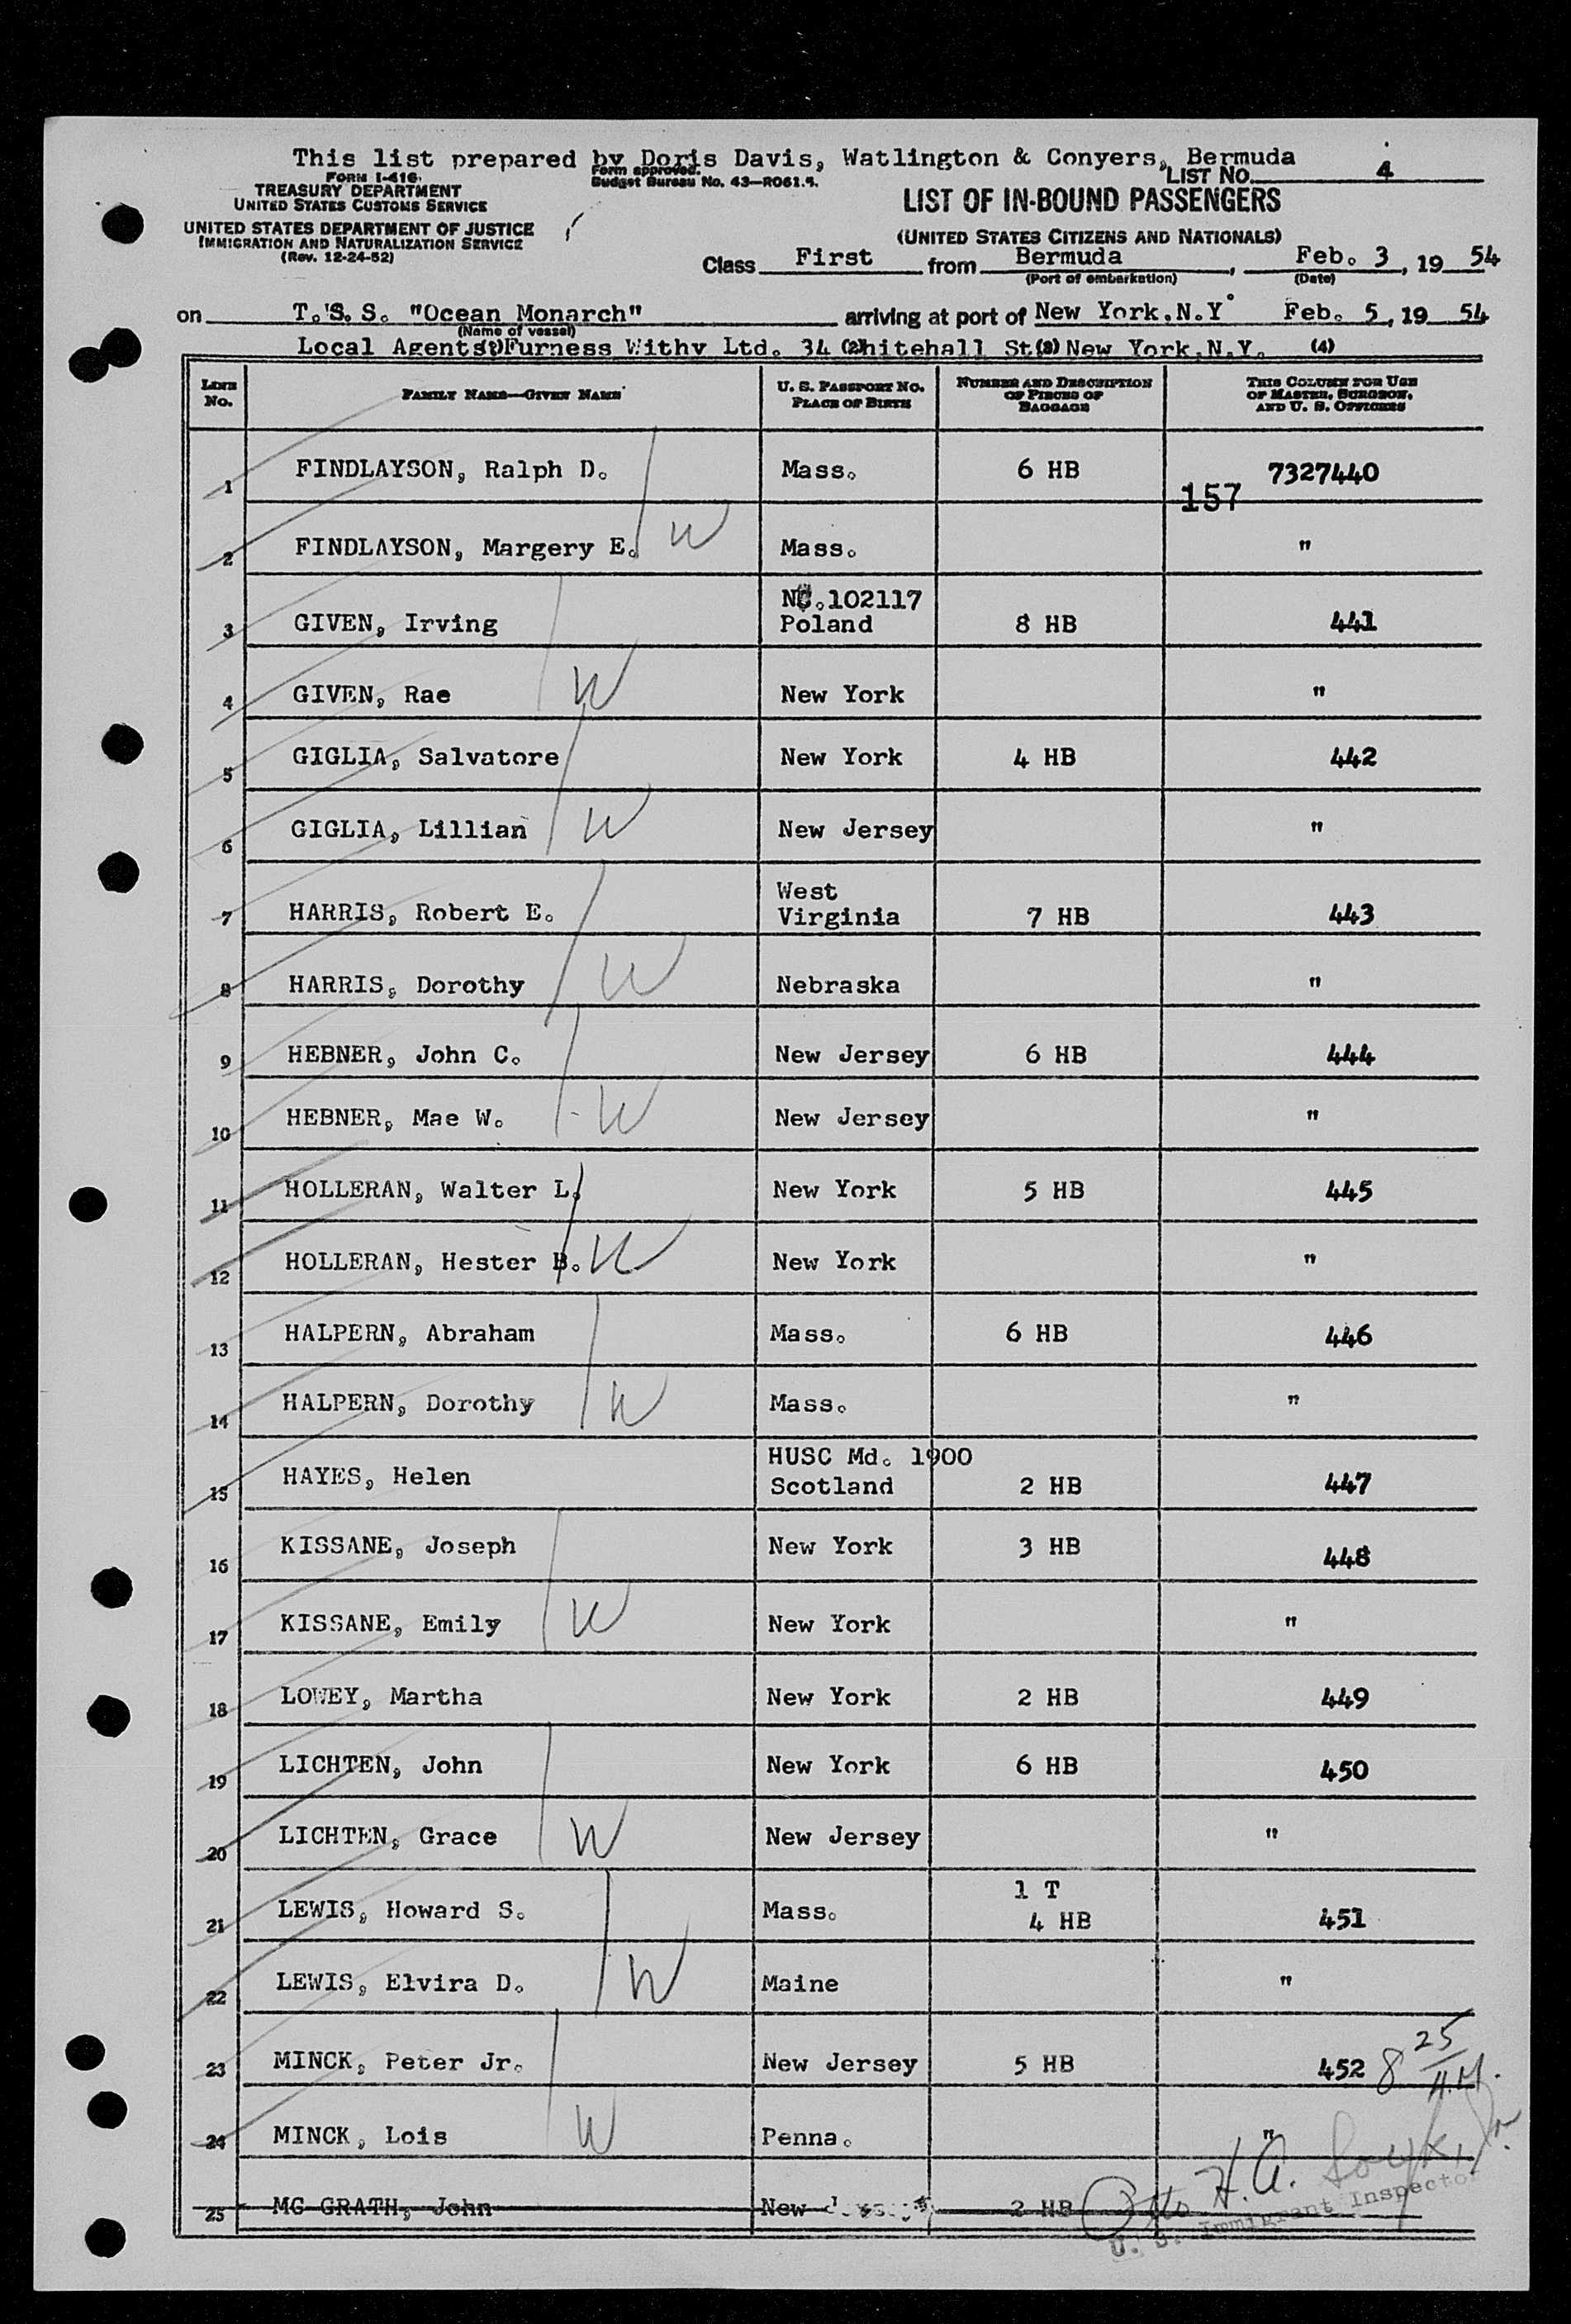 This list prepared by Doris Davis, Watlington & Conyers, Bermuda
FORM I-416
TREASURY DEPARTMENT
UNITED STATES CUSTOMS SERVICE
UNITED STATES DEPARTMENT OF JUSTICE
IMMIGRATION AND NATURALIZATION SERVICE
(Rev. 12-24-52)
Form approved.
Budget Bureau No. 43—R061.4.
LIST NO. 4
LIST OF IN-BOUND PASSENGERS
(UNITED STATES CITIZENS AND NATIONALS)
Class First from Bermuda, Feb. 3, 19 54
(Port of embarkation) (Date)
on T.S.S. "Ocean Monarch" arriving at port of New York.N.Y. Feb. 5, 19 54
(Name of vessel)
Local Agents (1) Furness Withy Ltd. 34 (2) Whitehall St. (3) New York.N.Y. (4)
LINE No. FAMILY NAME—GIVEN NAME U. S. PASSPORT NO. PLACE OF BIRTH NUMBER AND DESCRIPTION OF PIECES OF BAGGAGE THIS COLUMN FOR USE OF MASTER, SURGEON, AND U. S. OFFICERS
1 FINDLAYSON, Ralph D. Mass. 6 HB 7327440
157
2 FINDLAYSON, Margery E. W Mass. "
NC.102117
3 GIVEN, Irving Poland 8 HB 441
4 GIVEN, Rae W New York "
5 GIGLIA, Salvatore New York 4 HB 442
6 GIGLIA, Lillian W New Jersey "
West
7 HARRIS, Robert E. Virginia 7 HB 443
8 HARRIS, Dorothy W Nebraska "
9 HEBNER, John C. New Jersey 6 HB 444
10 HEBNER, Mae W. W New Jersey "
11 HOLLERAN, Walter L. New York 5 HB 445
12 HOLLERAN, Hester B. W New York "
13 HALPERN, Abraham Mass. 6 HB 446
14 HALPERN, Dorothy W Mass. "
HUSC Md. 1900
15 HAYES, Helen Scotland 2 HB 447
16 KISSANE, Joseph New York 3 HB 448
17 KISSANE, Emily W New York "
18 LOWEY, Martha New York 2 HB 449
19 LICHTEN, John New York 6 HB 450
20 LICHTEN, Grace W New Jersey "
1 T
21 LEWIS, Howard S. Mass. 4 HB 451
22 LEWIS, Elvira D. W Maine "
23 MINCK, Peter Jr. New Jersey 5 HB 452 8 25/A.M.
24 MINCK, Lois W Penna. "
25 MC GRATH, John New Jersey 2 HB
H.A.
U. S. Immigrant Inspector